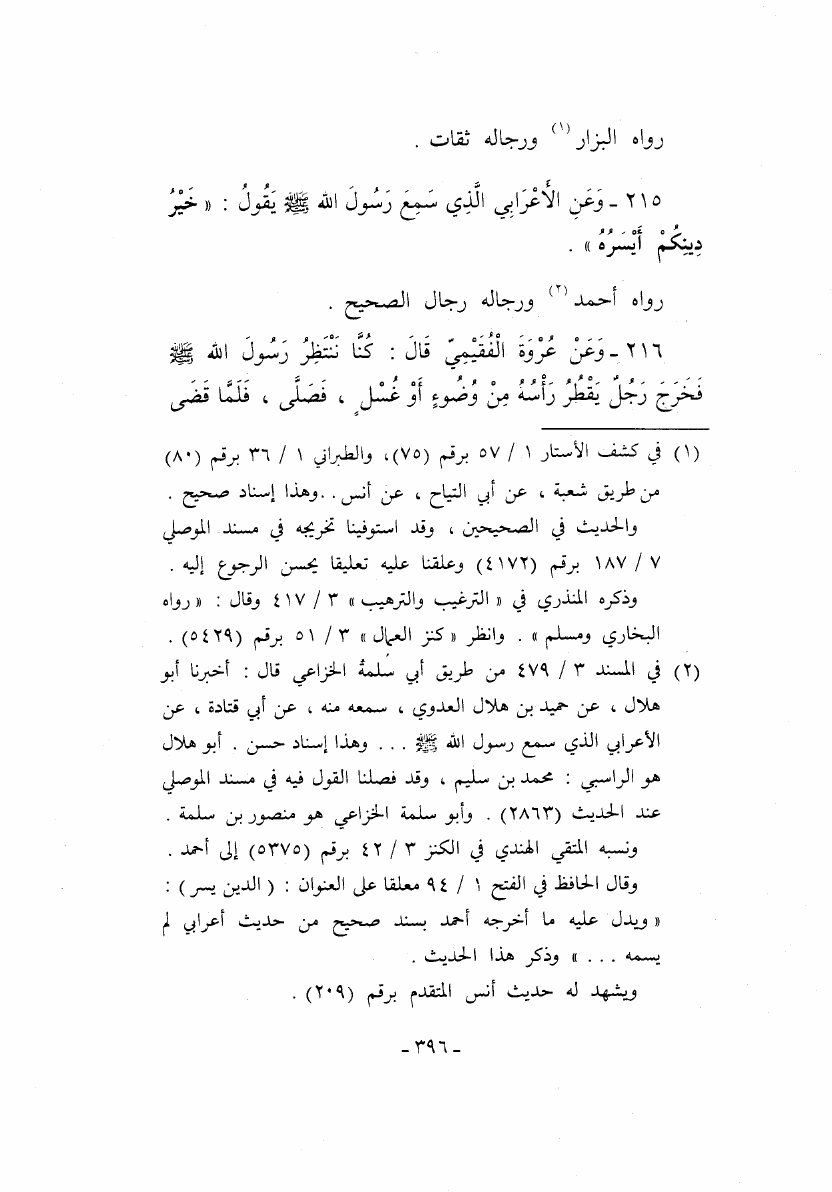 رواه البزار (١) ورجاله ثقات .
٢١٥ ـ وَعَنِ الأَعْرَابِي الَّذِي سَمِعَ رَسُولَ الله ﷺ يَقُولُ : « خَيْرُ
دِينِكُمْ أَيْسَرُهُ » .
رواه أحمد (٢) ورجاله رجال الصحيح .
٢١٦ ـ وَعَنْ عُرْوَةَ الْفُقَيْمِيّ قَالَ : كُنَّا نَنْتَظِرُ رَسُولَ الله ﷺ
فَخَرَجَ رَجُلٌ يَقْطُرُ رَأْسُهُ مِنْ وُضُوءٍ أَوْ غُسْلٍ ، فَصَلَّى ، فَلَمَّا قَضَى
(١) في كشف الأستار ١ / ٥٧ برقم (٧٥)، والطبراني ١ / ٣٦ برقم (٨٠)
من طريق شعبة ، عن أبي التياح ، عن أنس . . وهذا إسناد صحيح .
والحديث في الصحيحين ، وقد استوفينا تخريجه في مسند الموصلي
٧ / ١٨٧ برقم (٤١٧٢) وعلقنا عليه تعليقا يحسن الرجوع إليه .
وذكره المنذري في « الترغيب والترهيب » ٣ / ٤١٧ وقال : « رواه
البخاري ومسلم » . وانظر « كنز العمال » ٣ / ٥١ برقم (٥٤٢٩) .
(٢) في المسند ٣ / ٤٧٩ من طريق أبي سَلمةُ الخزاعي قال : أخبرنا أبو
هلال ، عن حميد بن هلال العدوي ، سمعه منه ، عن أبي قتادة ، عن
الأعرابي الذي سمع رسول الله ﷺ . . . وهذا إسناد حسن . أبو هلال
هو الراسبي : محمد بن سليم ، وقد فصلنا القول فيه في مسند الموصلي
عند الحديث (٢٨٦٣) . وأبو سلمة الخزاعي هو منصور بن سلمة .
ونسبه المتقي الهندي في الكنز ٣ / ٤٢ برقم (٥٣٧٥) إلى أحمد .
وقال الحافظ في الفتح ١ / ٩٤ معلقا على العنوان : ( الدين يسر ) :
« ويدل عليه ما أخرجه أحمد بسند صحيح من حديث أعرابي لم
يسمه . . . » وذكر هذا الحديث .
ويشهد له حديث أنس المتقدم برقم (٢٠٩) .
ـ ٣٩٦ ـ